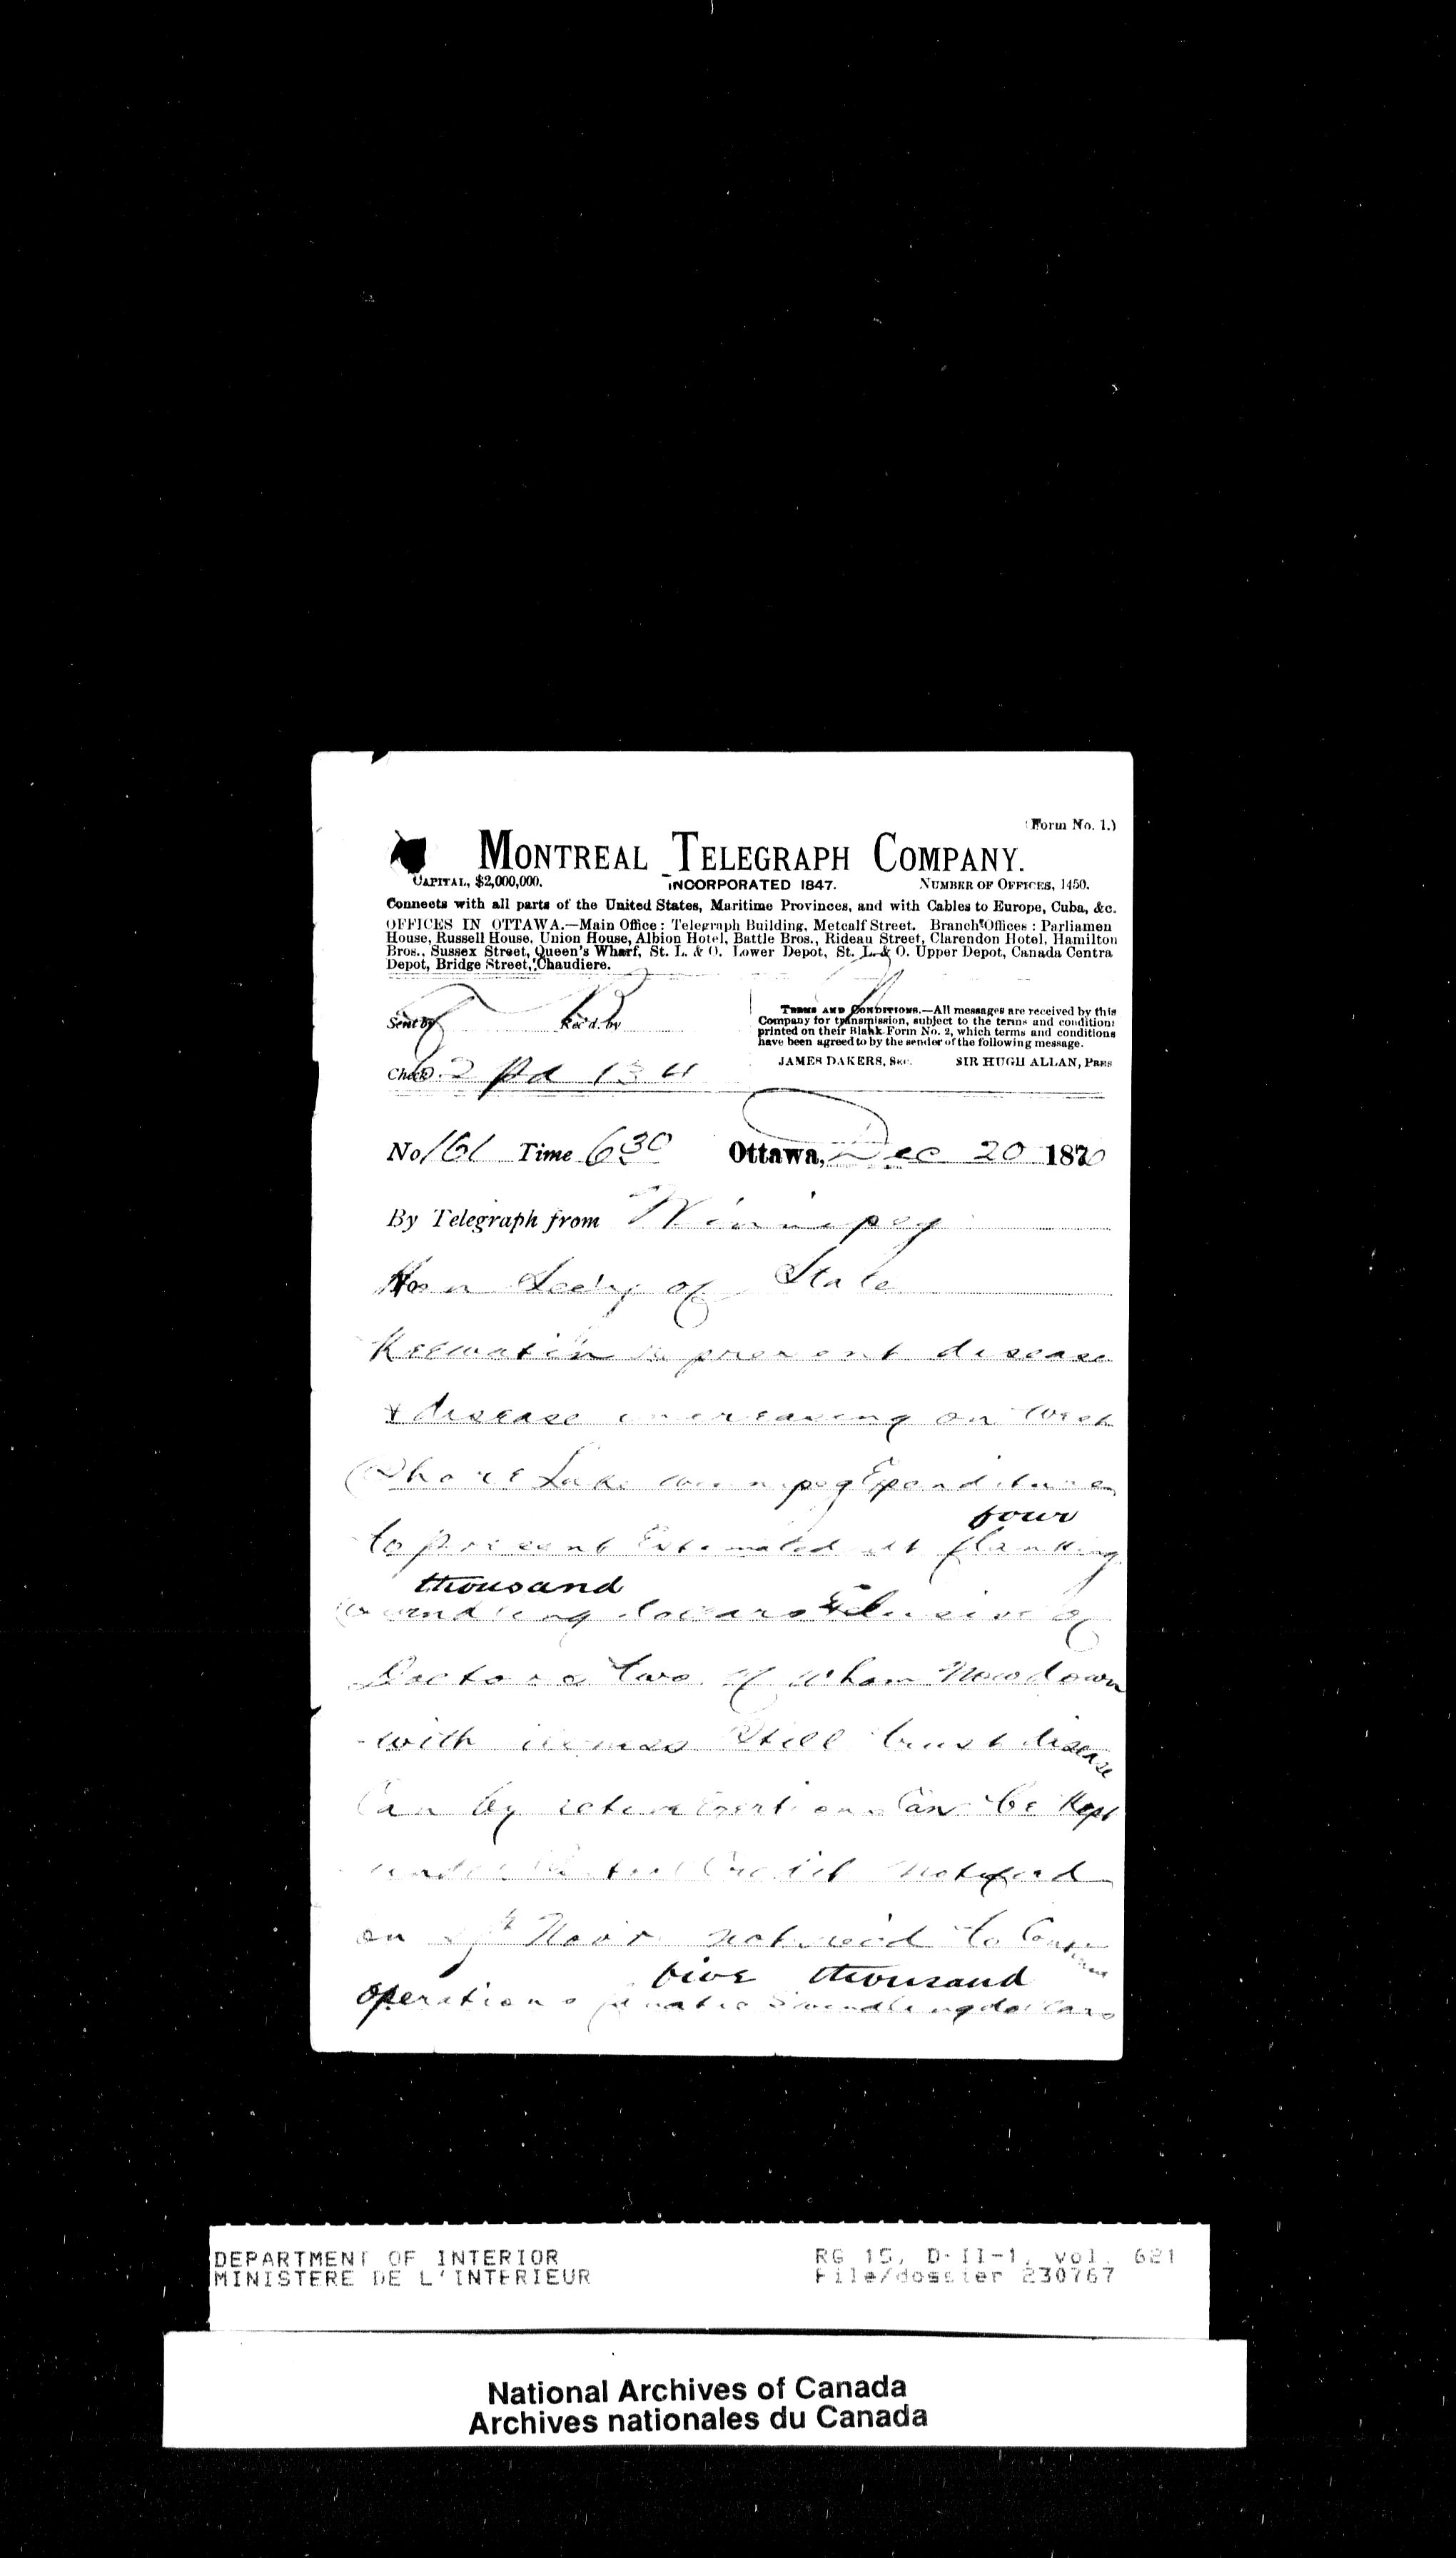 (Form No. 1.)
MONTREAL TELEGRAPH COMPANY.
CAPITAL, $2,000,000. INCORPORATED 1847. NUMBER OF OFFICES, 1450.
Connects with all parts of the United States, Maritime Provinces, and with Cables to Europe, Cuba, &c.
OFFICES IN OTTAWA.—Main Office : Telegraph Building, Metcalf Street. Branch Offices : Parliamen
House, Russell House, Union House, Albion Hotel, Battle Bros., Rideau Street, Clarendon Hotel, Hamilton
Bros., Sussex Street, Queen's Wharf, St. L. & O. Lower Depot, St. L. & O. Upper Depot, Canada Centra
Depot, Bridge Street, Chaudiere.
TERMS AND CONDITIONS.—All messages are received by this
Company for transmission, subject to the terms and conditions
printed on their Blank Form No. 2, which terms and conditions
have been agreed to by the sender of the following message.
JAMES DAKERS, SEC. SIR HUGH ALLAN, PRES
Sent by Rec'd. by
Check 62 Pd
No 161 Time 630 Ottawa, Dec 20 1876
By Telegraph from Winnipeg
Hon Secy of State
Keewatin disease
& disease increasing on West
Shore Lake Winnipeg Expenditure
four
to present Estimated at flanking
thousand
swindling dollars Exclusive of
Doctors two of whom now down
with illness Still trust disease
Can by can be Kept
under Credit
on Novr not to Continue
five thousand
operations fanatic Swindling dollars
DEPARTMENT OF INTERIOR
MINISTERE DE L'INTERIEUR
RG 15, D-II-1, vol. 621
File/dossier 230767
National Archives of Canada
Archives nationales du Canada